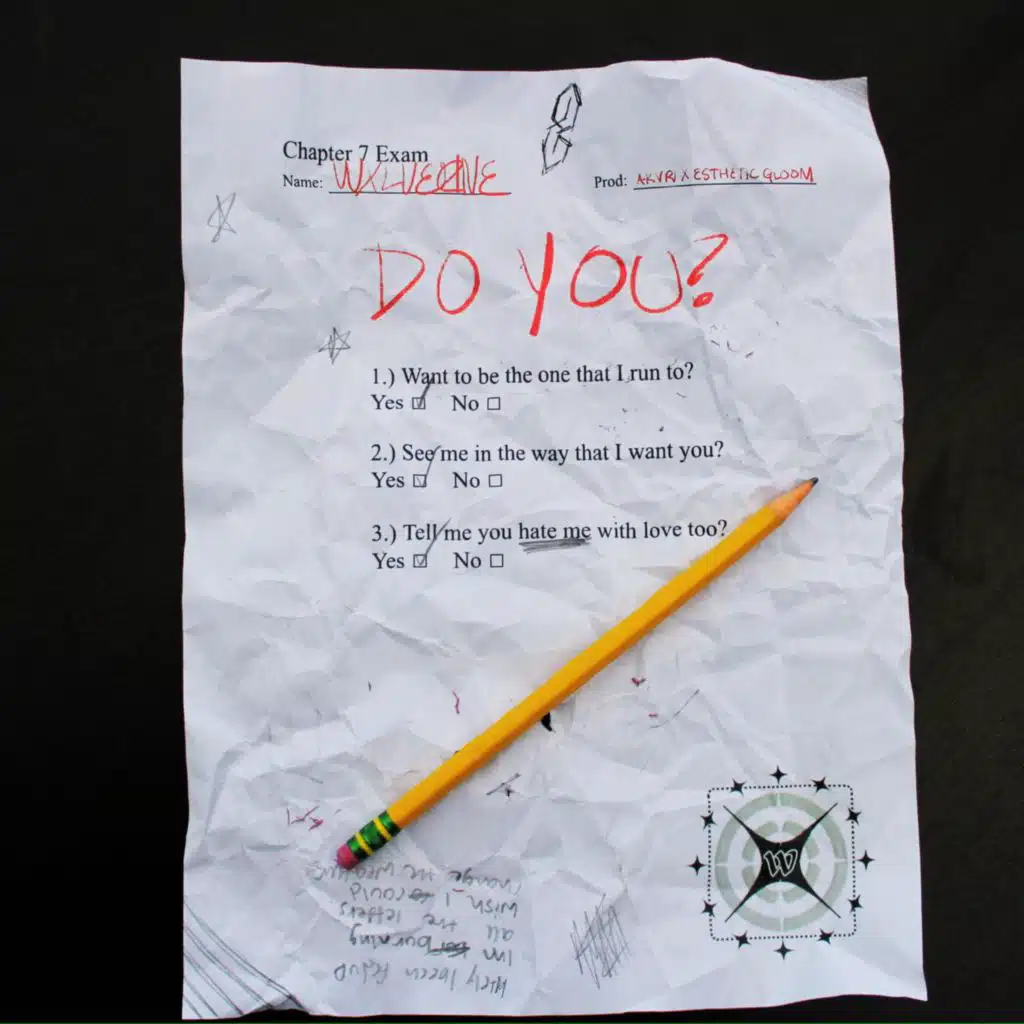 Chapter 7 Exam
Name: WXLVERINE
Prod: AKVRI X ESTHETIC GLOOM
DO YOU?
1.) Want to be the one that I run to?
Yes ☑ No ☐
2.) See me in the way that I want you?
Yes ☑ No ☐
3.) Tell me you hate me with love too?
Yes ☑ No ☐
W
been fedup
Im burning
all the letters
wish I could
change the weather